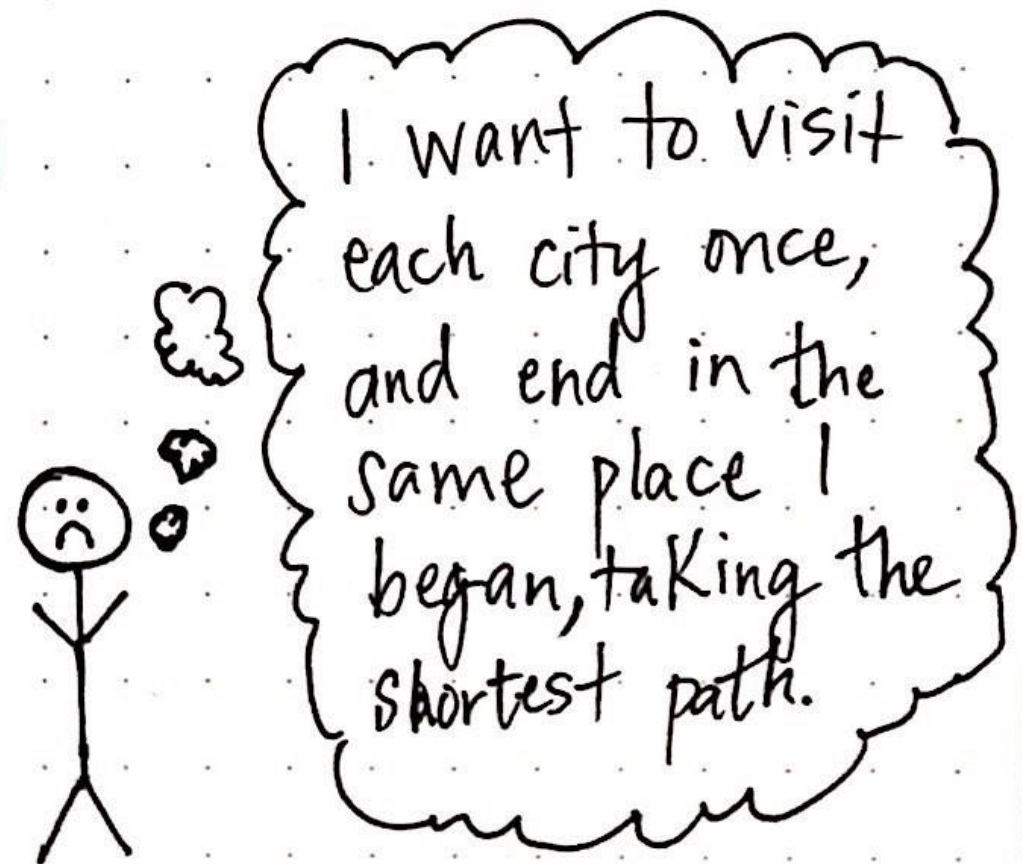 I want to visit
each city once,
and end in the
same place I
began, taking the
shortest path.